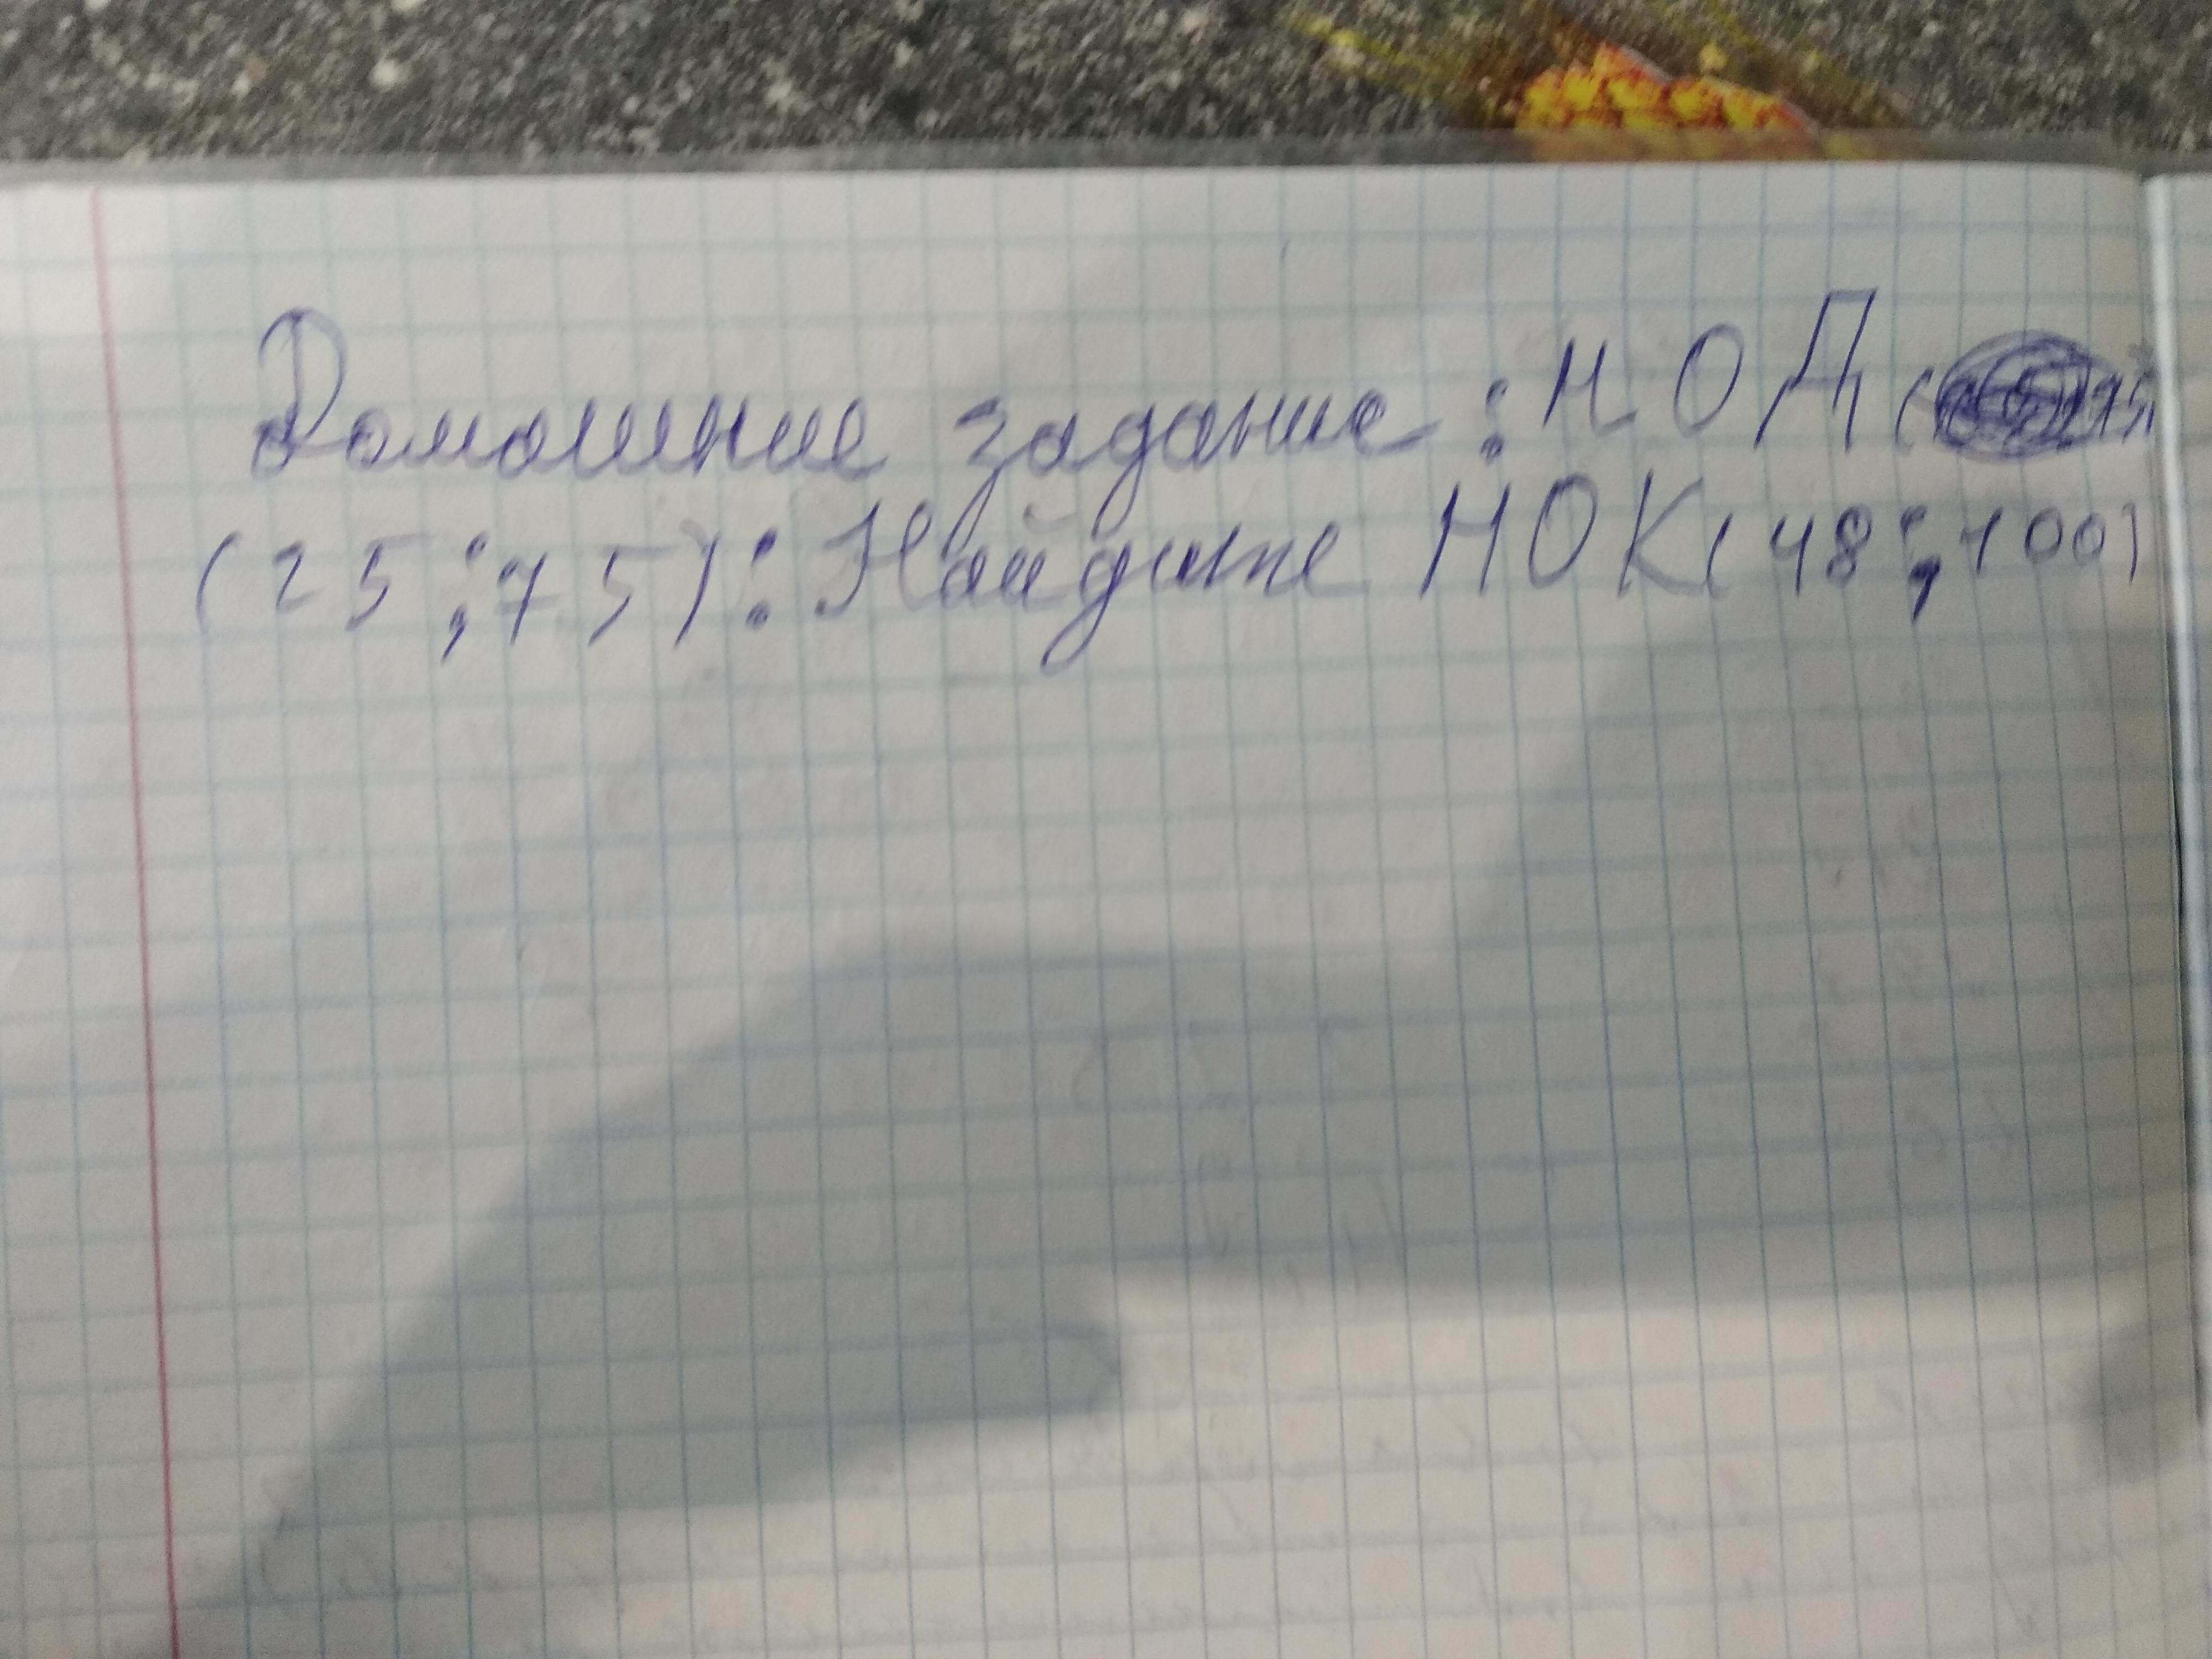 Домашние задание: НОД (
(25;75): Найдите НОК(48;100)